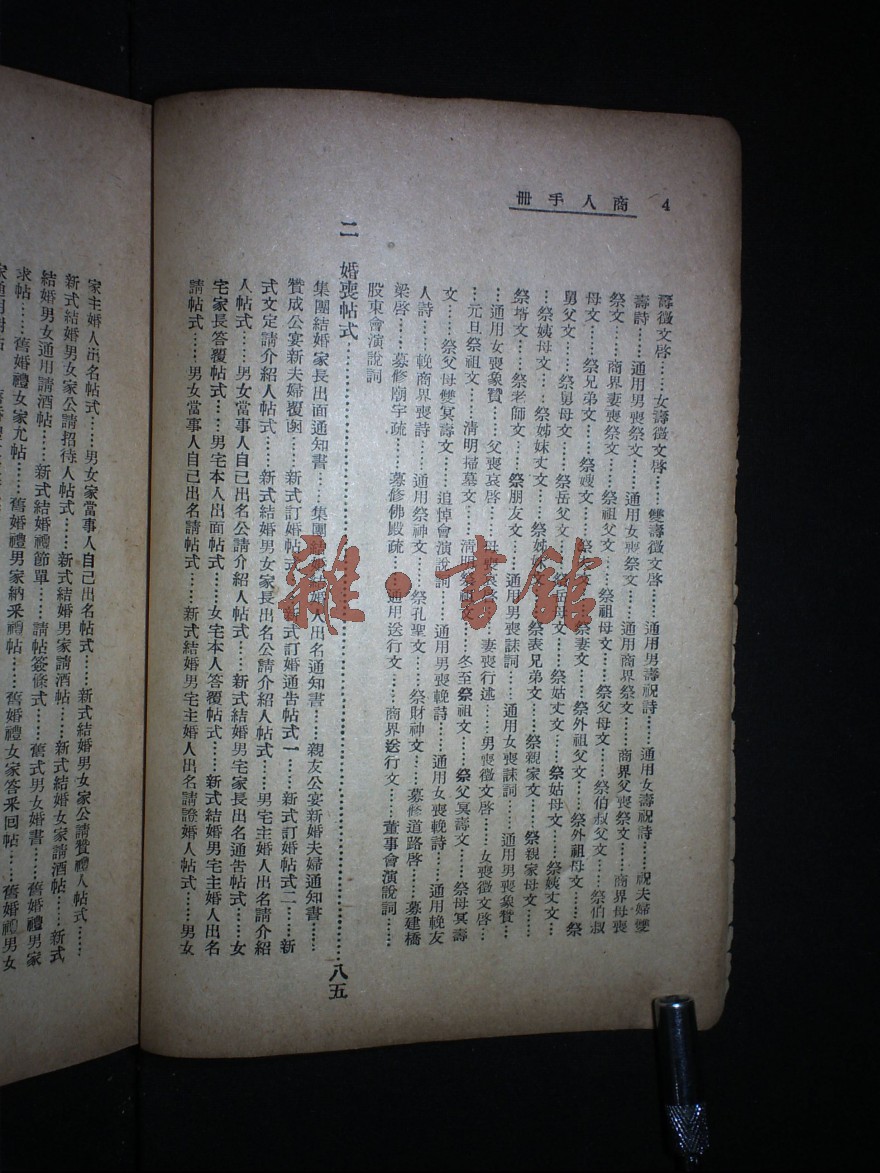 4 商人手冊
壽徵文啓……女壽徵文啓……雙壽徵文啓……通用男壽祝詩……通用女壽祝詩……祝夫婦雙
壽詩……通用男喪祭文……通用女喪祭文……通用商界祭文……商界父喪祭文……商界母喪
祭文……商界妻喪祭文……祭祖父文……祭祖母文……祭父母文……祭伯叔父文……祭伯叔
母文……祭兄弟文……祭嫂文……祭夫文……祭妻文……祭外祖父文……祭外祖母文……祭
舅父文……祭舅母文……祭岳父文……祭岳母文……祭姑丈文……祭姑母文……祭姨丈文…
…祭姨母文……祭姊妹丈文……祭姊妹文……祭表兄弟文……祭親家文……祭親家母文……
祭壻文……祭老師文……祭朋友文……通用男喪誄詞……通用女喪誄詞……通用男喪象贊…
…通用女喪象贊……父喪哀啓……母喪哀啓……妻喪行述……男喪徵文啓……女喪徵文啓…
…元旦祭祖文……清明掃墓文……清明祭祖文……冬至祭祖文……祭父冥壽文……祭母冥壽
文……祭父母雙冥壽文……追悼會演說詞……通用男喪輓詩……通用女喪輓詩……通用輓友
人詩……輓商界喪詩……通用祭神文……祭孔聖文……祭財神文……募修道路啓……募建橋
梁啓……募修廟宇疏……募修佛殿疏……通用送行文……商界送行文……董事會演說詞……
股東會演說詞
二 婚喪帖式……八五
集團結婚家長出面通知書……集團結婚結婚人出名通知書……親友公宴新婚夫婦通知書……
贊成公宴新夫婦覆函……新式訂婚帖式……新式訂婚通告帖式一……新式訂婚帖式二……新
式文定請介紹人帖式……新式結婚男女家長出名公請介紹人帖式……男宅主婚人出名請介紹
人帖式……男女當事人自己出名公請介紹人帖式……新式結婚男宅家長出名通告帖式……女
宅家長答覆帖式……男宅本人出面帖式……女宅本人答覆帖式……新式結婚男宅主婚人出名
請帖式……男女當事人自己出名請帖式……新式結婚男宅主婚人出名請證婚人帖式……男女
家主婚人出名帖式……男女家當事人自己出名帖式……新式結婚男女家公請贊禮人帖式……
新式結婚男女家公請招待人帖式……新式結婚男家請酒帖……新式結婚女家請酒帖……新式
結婚男女通用請酒帖……新式結婚禮節單……請帖簽條式……舊式男女婚書……舊婚禮男家
求帖……舊婚禮女家允帖……舊婚禮男家納采禮帖……舊婚禮女家答采回帖……舊婚禮男女
雜·書館